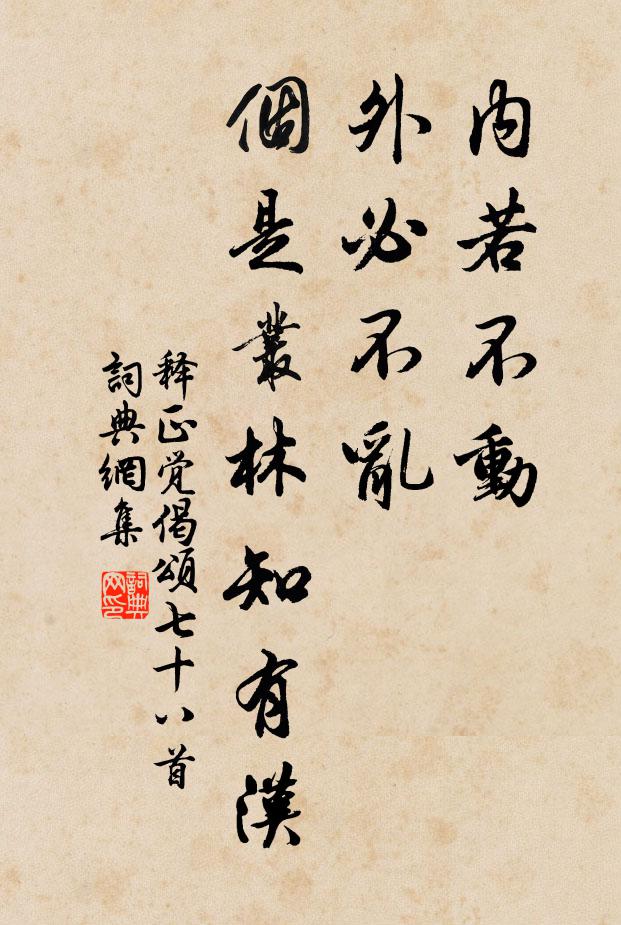 内若不動
外必不亂
個是叢林知有漢
释正觉偈頌七十八首
詞典網集
詞典
网印